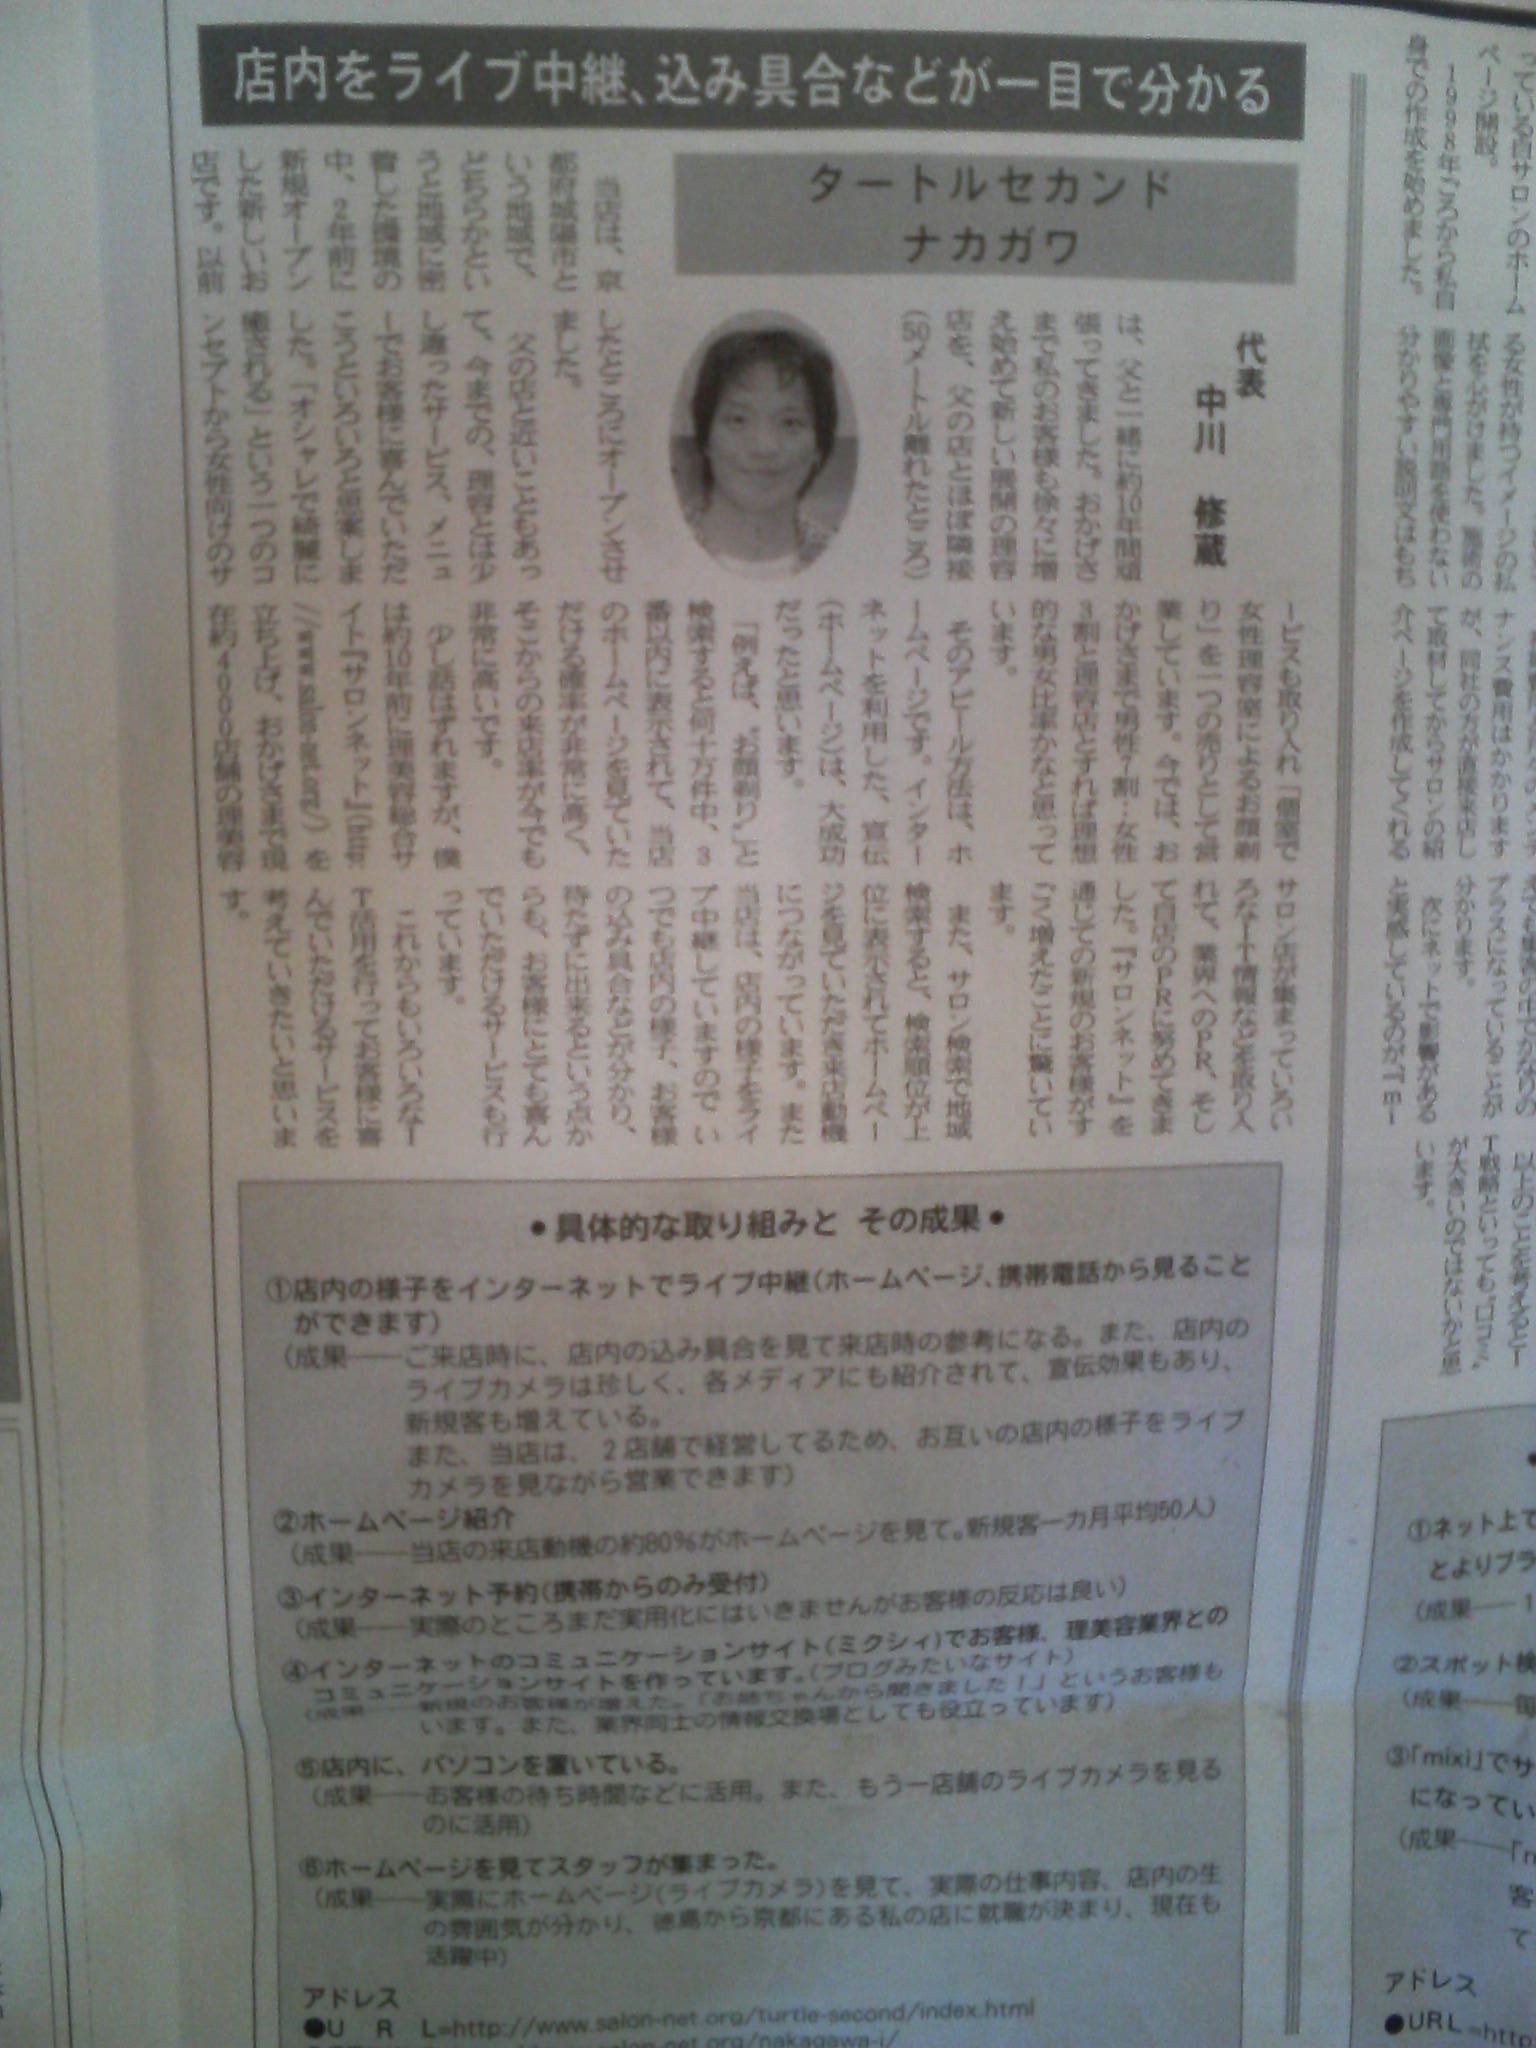 店内をライブ中継、込み具合などが一目で分かる
タートルセカンド
ナカガワ
代表
中川 修蔵
当店は、京
都府城陽市と
いう地域で、
どちらかとい
うと地域に密
着した環境の
中、2年前に
新規オープン
した新しいお
店です。以前
は、父と一緒に約10年間頑
張ってきました。おかげさ
まで私のお客様も徐々に増
え始めて新しい展開の理容
店を、父の店とほぼ隣接
(50メートル離れたところ)
したところにオープンさせ
ました。
父の店と近いこともあっ
て、今までの、理容とは少
し違ったサービス、メニュ
ーでお客様に喜んでいただ
こうといろいろと思案しま
した。「オシャレで綺麗に
癒される」という一つのコ
ンセプトから女性向けのサ
ービスも取り入れ「個室で
女性理容室によるお顔剃
り」を一つの売りとして営
業しています。今では、お
かげさまで男性7割:女性
3割と理容店とすれば理想
的な男女比率かなと思って
います。
そのアピール方法は、ホ
ームページです。インター
ネットを利用した、宣伝
(ホームページ)は、大成功
だったと思います。
「例えば、“お顔剃り”と
検索すると何十万件中、3
番以内に表示されて、当店
のホームページを見ていた
だける確率が非常に高く、
そこからの来店率が今でも
非常に高いです。
少し話はずれますが、僕
は約10年前に理美容総合サ
イト『サロンネット』(http:
//www.salon-net.org/)を
立ち上げ、おかげさまで現
在約4000店舗の理美容
サロン店が集まっていろい
ろなIT情報などを取り入
れて、業界へのPR、そし
て自店のPRに努めてきま
した。『サロンネット』を
通じての新規のお客様がす
ごく増えたことに驚いてい
ます。
また、サロン検索で地域
検索すると、検索順位が上
位に表示されてホームペー
ジを見ていただき来店動機
につながっています。また
当店は、店内の様子をライ
ブ中継していますのでい
つでも店内の様子、お客様
の込み具合などが分かり、
待たずに出来るという点か
らも、お客様にとても喜ん
でいただけるサービスも行
っています。
これからもいろいろなI
T活用を行ってお客様に喜
んでいただけるサービスを
考えていきたいと思いま
す。
●具体的な取り組みと その成果●
①店内の様子をインターネットでライブ中継(ホームページ、携帯電話から見ること
ができます)
(成果――ご来店時に、店内の込み具合を見て来店時の参考になる。また、店内の
ライブカメラは珍しく、各メディアにも紹介されて、宣伝効果もあり、
新規客も増えている。
また、当店は、2店舗で経営してるため、お互いの店内の様子をライブ
カメラを見ながら営業できます)
②ホームページ紹介
(成果――当店の来店動機の約80%がホームページを見て。新規客一カ月平均50人)
③インターネット予約(携帯からのみ受付)
(成果――実際のところまだ実用化にはいきませんがお客様の反応は良い)
④インターネットのコミュニケーションサイト(ミクシィ)でお客様、理美容業界との
コミュニケーションサイトを作っています。(ブログみたいなサイト)
(成果――新規のお客様が増えた。「お姉ちゃんから聞きました!」というお客様も
います。また、業界同士の情報交換場としても役立っています)
⑤店内に、パソコンを置いている。
(成果――お客様の待ち時間などに活用。また、もう一店舗のライブカメラを見る
のに活用)
⑥ホームページを見てスタッフが集まった。
(成果――実際にホームページ(ライブカメラ)を見て、実際の仕事内容、店内の生
の雰囲気が分かり、徳島から京都にある私の店に就職が決まり、現在も
活躍中)
アドレス
●URL=http://www.salon-net.org/turtle-second/index.html
salon-net.org/nakagawa-i/
っている自サロンのホーム
ページ開設。
1998年ごろから私自
身での作成を始めました。
る女性が持つイメージの払
拭を心がけました。施術の
画像と専門用語を使わない
分かりやすい説明文はもち
ナンス費用はかかります
が、同社の方が直接来店し
て取材してからサロンの紹
介ページを作成してくれる
プラスになっていることが
分かります。
次にネットで影響がある
と実感しているのが「mi
以上のことを考えるとI
T戦略といっても“口コミ”
が大きいのではないかと思
います。
①ネット上で
とよりブラ
(成果――1
②スポット検
(成果――毎
③「mixi」でサ
になってい
(成果――「m
客
て
アドレス
●URL=http